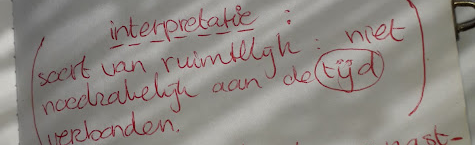 ( interpretatie :
soort van ruimtelijk : niet
noodzakelijk aan de tijd
verbonden. )